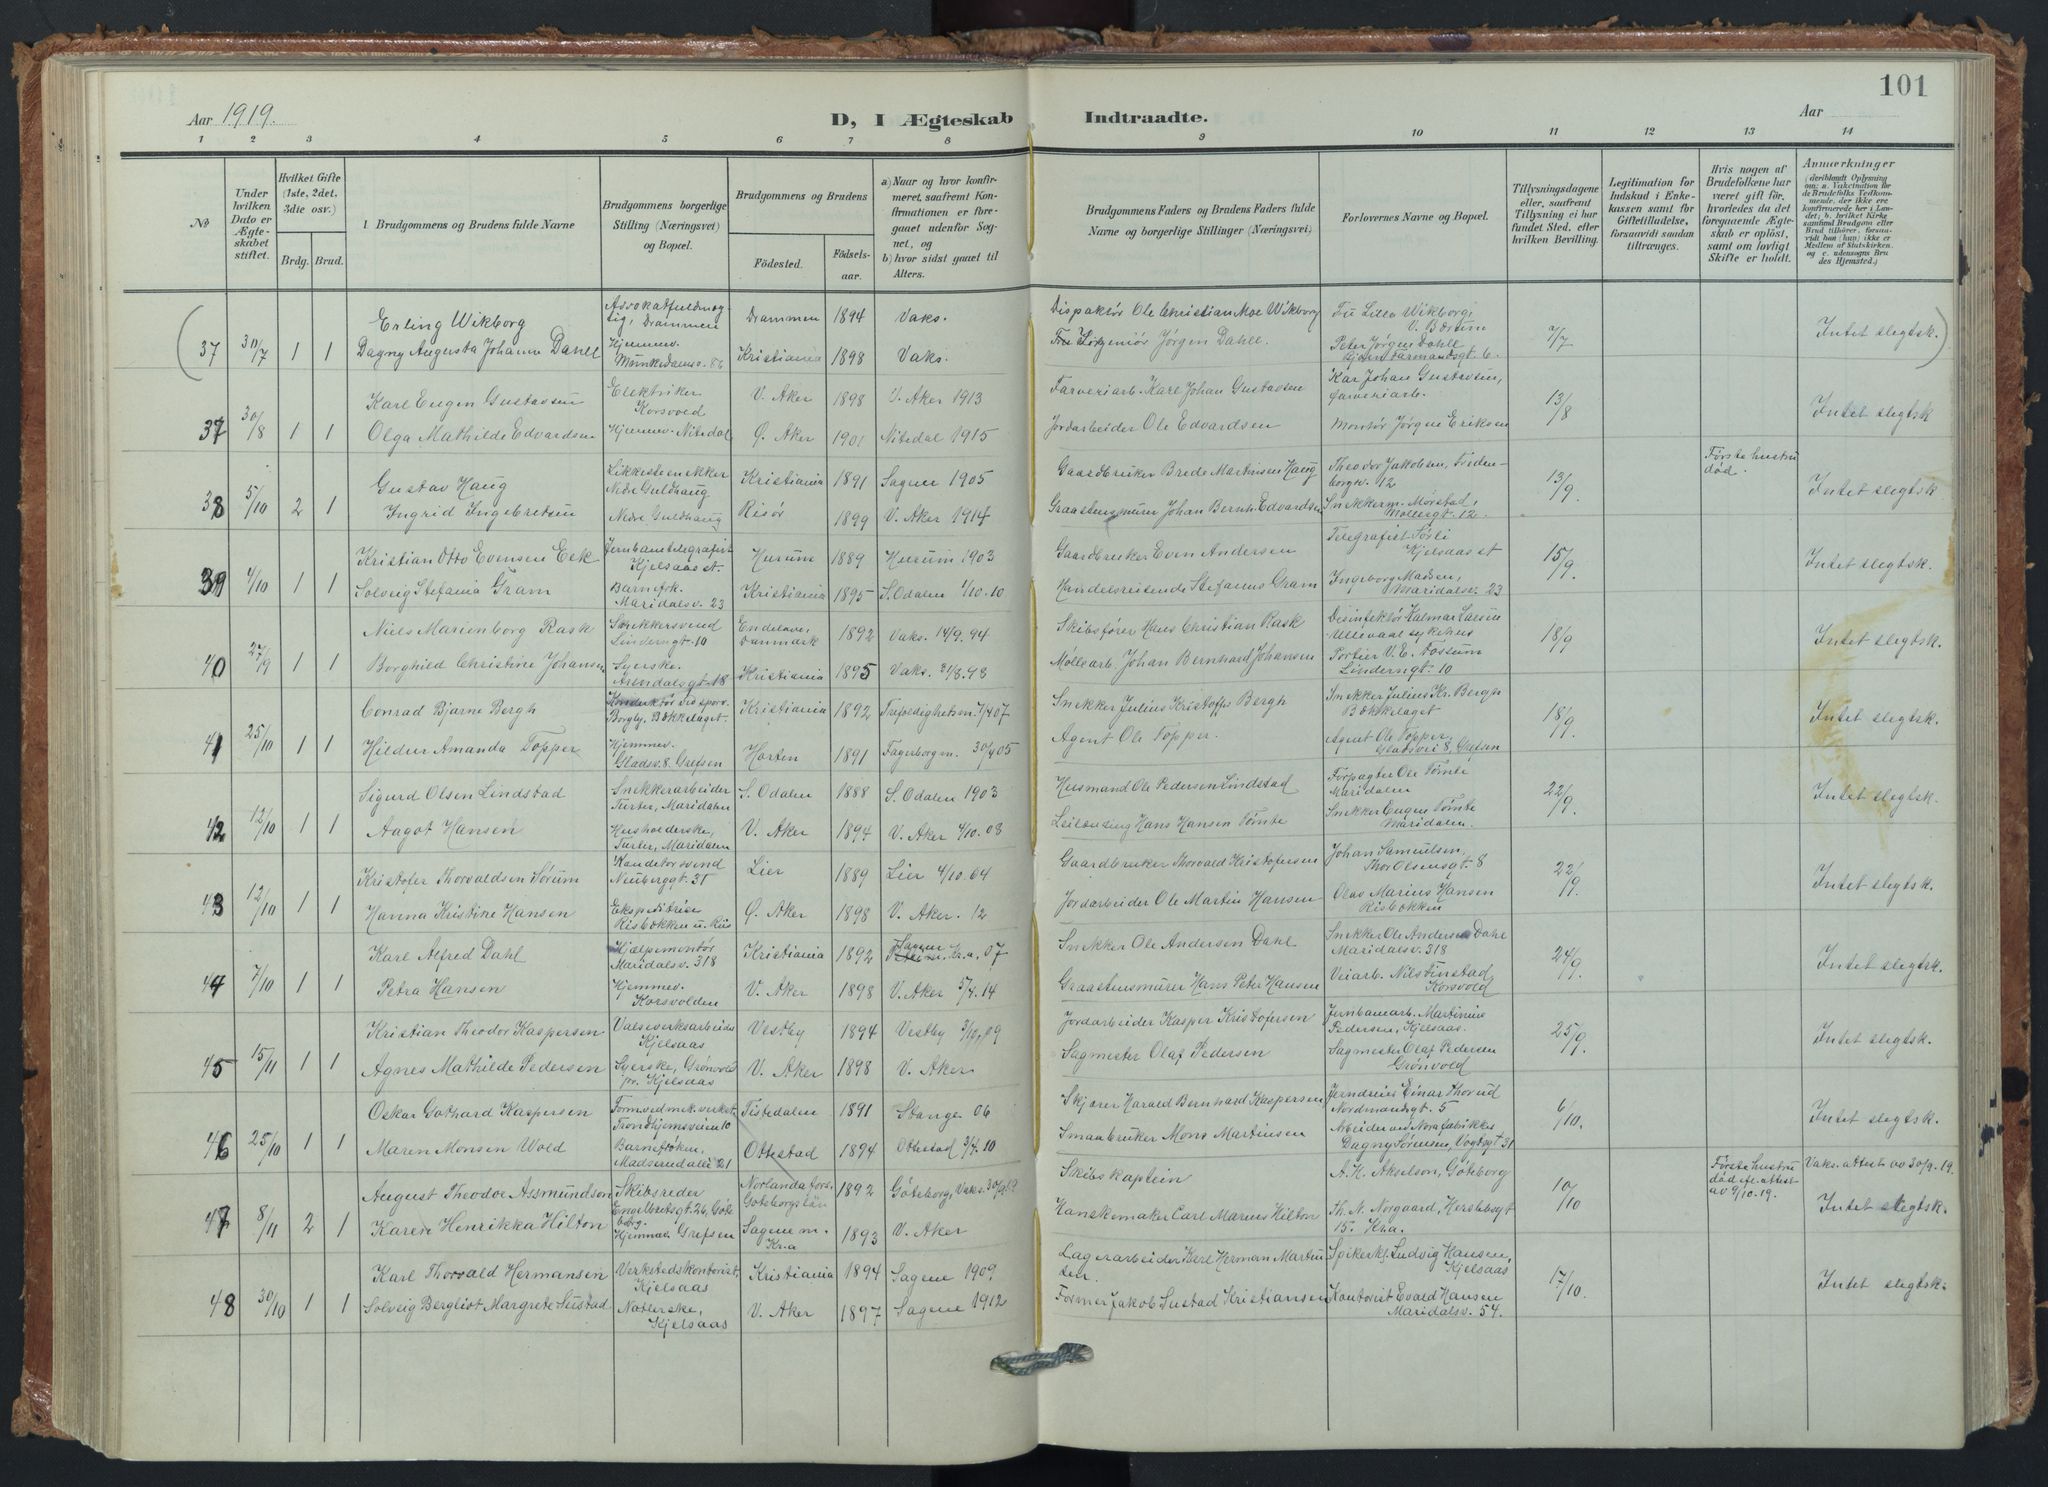 101
Aar 1919.
D, I Ægteskab Indtraadte.
Aar
1 2 3 4 5 6 7 8 9 10 11 12 13 14
No
Under hvilken Dato er Ægteskabet stiftet.
Hvilket Gifte (1ste, 2det, 3die osv.)
Brdg. Brud.
Brudgommens og Brudens fulde Navne
Brudgommens borgerlige Stilling (Næringsvei) og Bopæl.
Brudgommens og Brudens
Fødested. Fødselsaar.
a) Naar og hvor konfirmeret, saafremt Konfirmationen er foregaaet udenfor Sognet, og
b) hvor sidst gaaet til Alters.
Brudgommens Faders og Brudens Faders fulde Navne og borgerlige Stillinger (Næringsvei)
Forlovernes Navne og Bopæl.
Tillysningsdagene eller, saafremt Tillysning ei har fundet Sted, efter hvilken Bevilling.
Legitimation for Indskud i Enkekassen samt for Giftetilladelse, forsaavidt saadan tiltrænges.
Hvis nogen af Brudefolkene har været gift før, hvorledes da det foregaaende Ægteskab er opløst, samt om lovligt Skifte er holdt.
Anmærkninger
(deriblandt Oplysning om: a. Vakcination for de Brudefolks Vedkommende, der ikke ere konfirmerede her i Landet; b. hvilket Kirkesamfund Brudgom eller Brud tilhører, forsaavidt han (hun) ikke er Medlem af Statskirken, og c. udensogns Brudes Hjemsted.)
Erling Wikborg Advokatfuldmægtig, Drammen Drammen 1894 Vaks. Dispaktør Ole Christian Moe Wikborg Frü Lilla Wikborg, V. Bærum
(37 30/7 1 1 Dagny Augusta Johanne Dahll Hjemmev. Munkedamsv. 86 Kristiania 1898 Vaks. Ingeniør Jørgen Dahll. Peter Jørgen Dahll 7/7 Intet slegtsk.)
Karl Eugen Gustavsen Elektriker Korsvold V. Aker 1898 V. Aker 1913 Farveriarb. Karl Johan Gustavsen Kar Johan Gustavsen, farveriarb.
37 30/8 1 1 Olga Mathilde Edvardsen Hjemmev. Nitedal Ø. Aker 1901 Nitedal 1915 Jordarbeider Ole Edvardsen Montør Jørgen Eriksen 13/8 Intet slegtsk
Gustav Haug Likkisteensnekker Nedre Guldhaug Kristiania 1891 Sagene 1905 Gaardbruker Brede Martinsen Haug Theodor Jakobsen, Fredenborgv. 12 Første hustru død.
38 5/10 2 1 Ingrid Ingebretsen Nedre Guldhaug Risør 1899 V. Aker 1914 Graastensmurer Johan Bernh. Edvardsen Snekkerm. Mørstad, Møllergt. 12. 13/9. Intet slegtsk
Kristian Otto Evensen Eek Jernbanetelegrafist Kjelsaas st. Hurum 1889 Hurum 1903 Gaardbruker Even Andersen Telegrafist Sørli Kjelsaas st
39 4/10 1 1 Solveig Stefania Gram Barnefrk. Maridalsv. 23 Kristiania 1895 S. Odalen 4/10.10 Handelsreisende Stefanus Gram Ingeborg Madsen, Maridalsv. 23 15/9. Intet slegtsk.
Niels Marienborg Rask Snekkersvend Linderngt. 10 Endelave, Danmark 1892 Vaks. 14/9. 94 Skibsfører Hans Christian Rask Desinfektør Valmar Larsen Ullevaal sykehus
40 27/9 1 1 Borghild Christine Johansen Syerske. Arendalsgt. 18 Kristiania 1895 Vaks. 21/8. 98 Møllearb. Johan Bernhard Johansen Portier V. E. Fossum Linderngt. 10 18/9 Intet slegtsk.
Conrad Bjarne Bergh Konduktør ved sporv. Borgly, Bækkelaget. Kristiania 1892 Trefoldighetsm. 7/4 07 Snekker Julius Kristoffer Bergh Snekker Julius Kr. Bergh Bækkelaget
41 25/10 1 1 Hildur Amanda Topper Hjemmev. Gladsv. 8. Grefsen Horten 1891 Fagerborg m. 30/4 05 Agent Ole Topper. Agent Ole Topper, Gladsvei 8, Grefsen 18/9. Intet slegtsk.
Sigurd Olsen Lindstad Snekkerarbeider Turter, Maridalen S. Odalen 1888 S. Odalen 1903 Husmand Ole Pedersen Lindstad Forpagter Ole Tømte Maridalen
42 12/10 1 1 Aagot Hansen Husholderske, Turter, Maridalen V. Aker 1894 V. Aker 4/10. 08 Leilending Hans Hansen Tømte Snekker Eugen Tømte Maridalen. 22/9. Intet slegtsk.
Kristofer Thorvaldsen Sørum Neuberggt. 31 Lier 1889 Lier 4/10. 04 Gaardbruker Thorvald Kristofersen Johan Samuelsen, Thor Olsensgt. 8
43 12/10 1 1 Hanna Kristine Hansen Ekspeditrise Risbækken u. Ris Ø. Aker 1898 V. Aker. 12 Jordarbeider Ole Martin Hansen Olav Marius Hansen Risbækken 22/9. Intet slegtsk.
Karl Alfred Dahl Hjælpemontør Maridalsv. 318 Kristiania 1892 Sagene Kr.a, 07 Snekker Ole Andersen Dahl Snekker Ole Andersen Dahl Maridalsv. 318
44 7/10 1 1 Petra Hansen Hjemmev. Korsvolden V. Aker 1898 V. Aker 5/4. 14 Graastensmurer Hans Peter Hansen Veiarb. Nils Finstad Korsvold 24/9. Intet slegtsk.
Kristian Theodor Kaspersen Valseverksarbeider Kjelsaas Vestby 1894 Vestby 3/10. 09 Jordarbeider Kasper Kristofersen Jernbanearb. Martinius Pedersen, Kjelsaas.
45 15/11 1 1 Agnes Mathilde Pedersen Syerske, Grønvold pr. Kjelsaas V. Aker 1898 V. Aker Sagmester Olaf Pedersen Sagmester Olaf Pedersen Grønvold 25/9. Intet slegtsk.
Oskar Gothard Kaspersen Trondhjemsveien 10 Tistedalen 1891 Stange 06 Skjærer Harald Bernhard Kaspersen Jerndreier Einar Thorud Nordmandsgt. 5
46 25/10 1 1 Maren Monsen Wold Barnefrøken, Madserud allé 21 Ottestad 1894 Ottestad 3/4. 10 Smaabruker Mons Martinsen Arbeider ved Norafabrikker Dagny Sørensen, Vogtsgt. 31 6/10. Intet slegtsk.
August Theodor Assmundson Skibsreder Engelbrektsgt. 26, Göteborg. Norlandafors. Göteborgs län 1892 Göteborg, Vaks. 30/9. 19 Skibskaptein A. H. Akselson, Göteborg Første hustru død ifl. attest av 9/10. 19. Vaks. attest av 30/9. 19.
47 8/11 2 1 Karen Henrikka Hilton Hjemmev. Grefsen Sagene m. Kr.a 1893 V. Aker Hanskemaker Carl Marius Hilton Th. N. Norgaard, Herslebsgt 15. Kr.a. 10/10 Intet slegtsk.
Karl Thorvald Hermansen Verkstedskontorist, Kjelsaas Kristiania 1894 Sagene 1909 Lagerarbeider Karl Herman Martinsen. Spikerkl. Ludvig Hansen, Kjelsaas
48 30/10 1 1 Solveig Bergliot Margrete Sustad Notlerske, Kjelsaas V. Aker 1897 Sagene 1912 Former Jakob Sustad Kristiansen Kontorist Evald Hansen Maridalsv. 54. 17/10. Intet slegtsk.